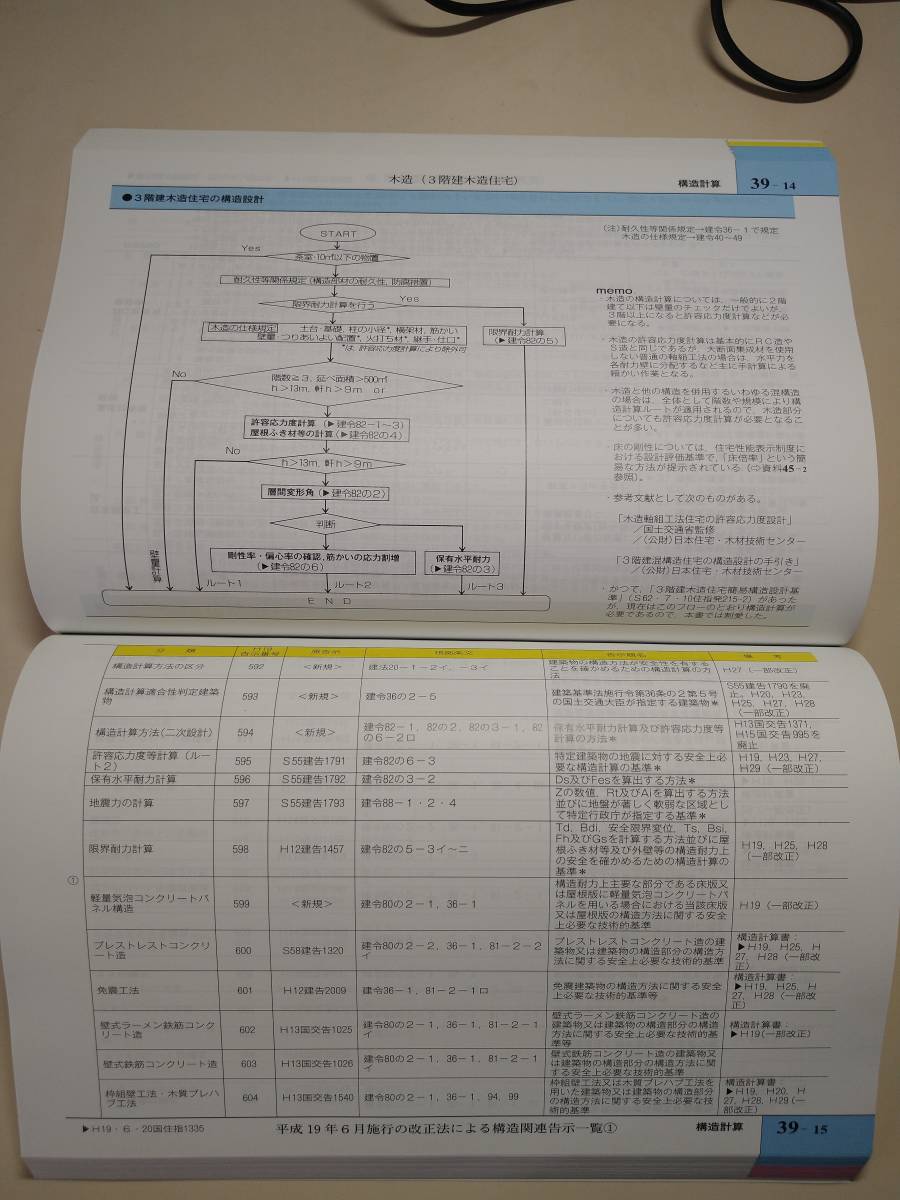 木造（3階建木造住宅）
構造計算
39-14
●3階建木造住宅の構造設計
START
（注）耐久性等関係規定→建令36−1で規定
木造の仕様規定→建令40〜49
Yes
茶室・10㎡以下の物置
耐久性等関係規定（構造部材の耐久性，防腐措置）
限界耐力計算を行う
Yes
木造の仕様規定
土台・基礎，柱の小径*，横架材，筋かい
壁量・つりあいよい配置*，火打ち材*，継手・仕口*
*は，許容応力度計算により除外可
限界耐力計算
（▶建令82の5）
No
階数≧3，延べ面積＞500㎡
h＞13m，軒h＞9m or
許容応力度計算（▶建令82−1〜3）
屋根ふき材等の計算（▶建令82の4）
No
h＞13m，軒h＞9m
層間変形角（▶建令82の2）
判断
剛性率・偏心率の確認，筋かいの応力割増
（▶建令82の6）
保有水平耐力
（▶建令82の3）
壁量計算
ルート1
ルート2
ルート3
END
memo
・木造の構造計算については，一般的に2階
建て以下は壁量のチェックだけでよいが，
3階以上になると許容応力度計算などが必
要になる。
・木造の許容応力度計算は基本的にRC造や
S造と同じであるが，大断面集成材を使用
しない普通の軸組工法の場合は，水平力を
各耐力壁に分配するなど主に手計算による
細かい作業となる。
・木造と他の構造を併用するいわゆる混構造
の場合は，全体として階数や規模により構
造計算ルートが適用されるので，木造部分
についても許容応力度計算が必要となるこ
とが多い。
・床の剛性については，住宅性能表示制度に
おける設計評価基準で，「床倍率」という簡
易な方法が提示されている（⇨資料45−2
参照）。
・参考文献として次のものがある。
「木造軸組工法住宅の許容応力度設計」
／国土交通省監修
／（公財）日本住宅・木材技術センター
「3階建混構造住宅の構造設計の手引き」
／（公財）日本住宅・木材技術センター
・かつて，「3階建木造住宅簡易構造設計基
準」（S62・7・10住指発215-2）があった
が，現在はこのフローのとおり構造計算が
必要であるので，本書では割愛した。
分類
H19
告示番号
原告示
根拠条文
告示題名
備考
構造計算方法の区分
592
＜新規＞
建法20−1−2イ，−3イ
建築物の構造方法が安全性を有する
ことを確かめるための構造計算の方
法
H27（一部改正）
構造計算適合性判定建築
物
593
＜新規＞
建令36の2−5
建築基準法施行令第36条の2第5号
の国土交通大臣が指定する建築物＊
S55建告1790を廃
止。H20，H23，
H25，H27，H28
（一部改正）
構造計算方法（二次設計）
594
＜新規＞
建令82−1，82の2，82の3−1，82
の6−2ロ
保有水平耐力計算及び許容応力度等
計算の方法＊
H13国交告1371，
H15国交告995を
廃止
許容応力度等計算（ルー
ト2）
595
S55建告1791
建令82の6−3
特定建築物の地震に対する安全上必
要な構造計算の基準＊
H19，H23，H27，
H29（一部改正）
保有水平耐力計算
596
S55建告1792
建令82の3−2
Ds及びFesを算出する方法＊
地震力の計算
597
S55建告1793
建令88−1・2・4
Zの数値，Rt及びAiを算出する方法
並びに地盤が著しく軟弱な区域とし
て特定行政庁が指定する基準＊
限界耐力計算
598
H12建告1457
建令82の5−3イ〜ニ
Td，Bdi，安全限界変位，Ts，Bsi，
Fh及びGsを計算する方法並びに屋
根ふき材等及び外壁等の構造耐力上
の安全を確かめるための構造計算の
基準＊
H19，H25，H28
（一部改正）
①
軽量気泡コンクリートパ
ネル構造
599
＜新規＞
建令80の2−1，36−1
構造耐力上主要な部分である床版又
は屋根版に軽量気泡コンクリートパ
ネルを用いる場合における当該床版
又は屋根版の構造方法に関する安全
上必要な技術的基準
H19（一部改正）
プレストレストコンクリ
ート造
600
S58建告1320
建令80の2−2，36−1，81−2−2
イ
プレストレストコンクリート造の建
築物又は建築物の構造部分の構造方
法に関する安全上必要な技術的基準
構造計算書：
▶H19，H25，H
27，H28（一部改
正）
免震工法
601
H12建告2009
建令36−1，81−2−1ロ
免震建築物の構造方法に関する安全
上必要な技術的基準等
構造計算書：
▶H19，H25，H
27，H28（一部改
正）
壁式ラーメン鉄筋コンク
リート造
602
H13国交告1025
建令80の2−1，36−1，81−2−1
イ
壁式ラーメン鉄筋コンクリート造の
建築物又は建築物の構造部分の構造
方法に関する安全上必要な技術的基
準等
構造計算書：
▶H19（一部改正）
壁式鉄筋コンクリート造
603
H13国交告1026
建令80の2−1，36−1，81−2−1
イ
壁式鉄筋コンクリート造の建築物又
は建築物の構造部分の構造方法に関
する安全上必要な技術的基準
枠組壁工法・木質プレハ
ブ工法
604
H13国交告1540
建令80の2−1，36−1，94，99
枠組壁工法又は木質プレハブ工法を
用いた建築物又は建築物の構造部分
の構造方法に関する安全上必要な技
術的基準
構造計算書：
▶H19，H20，H
27，H28，H29（一
部改正）
▶H19・6・20国住指1335
平成19年6月施行の改正法による構造関連告示一覧①
構造計算
39-15